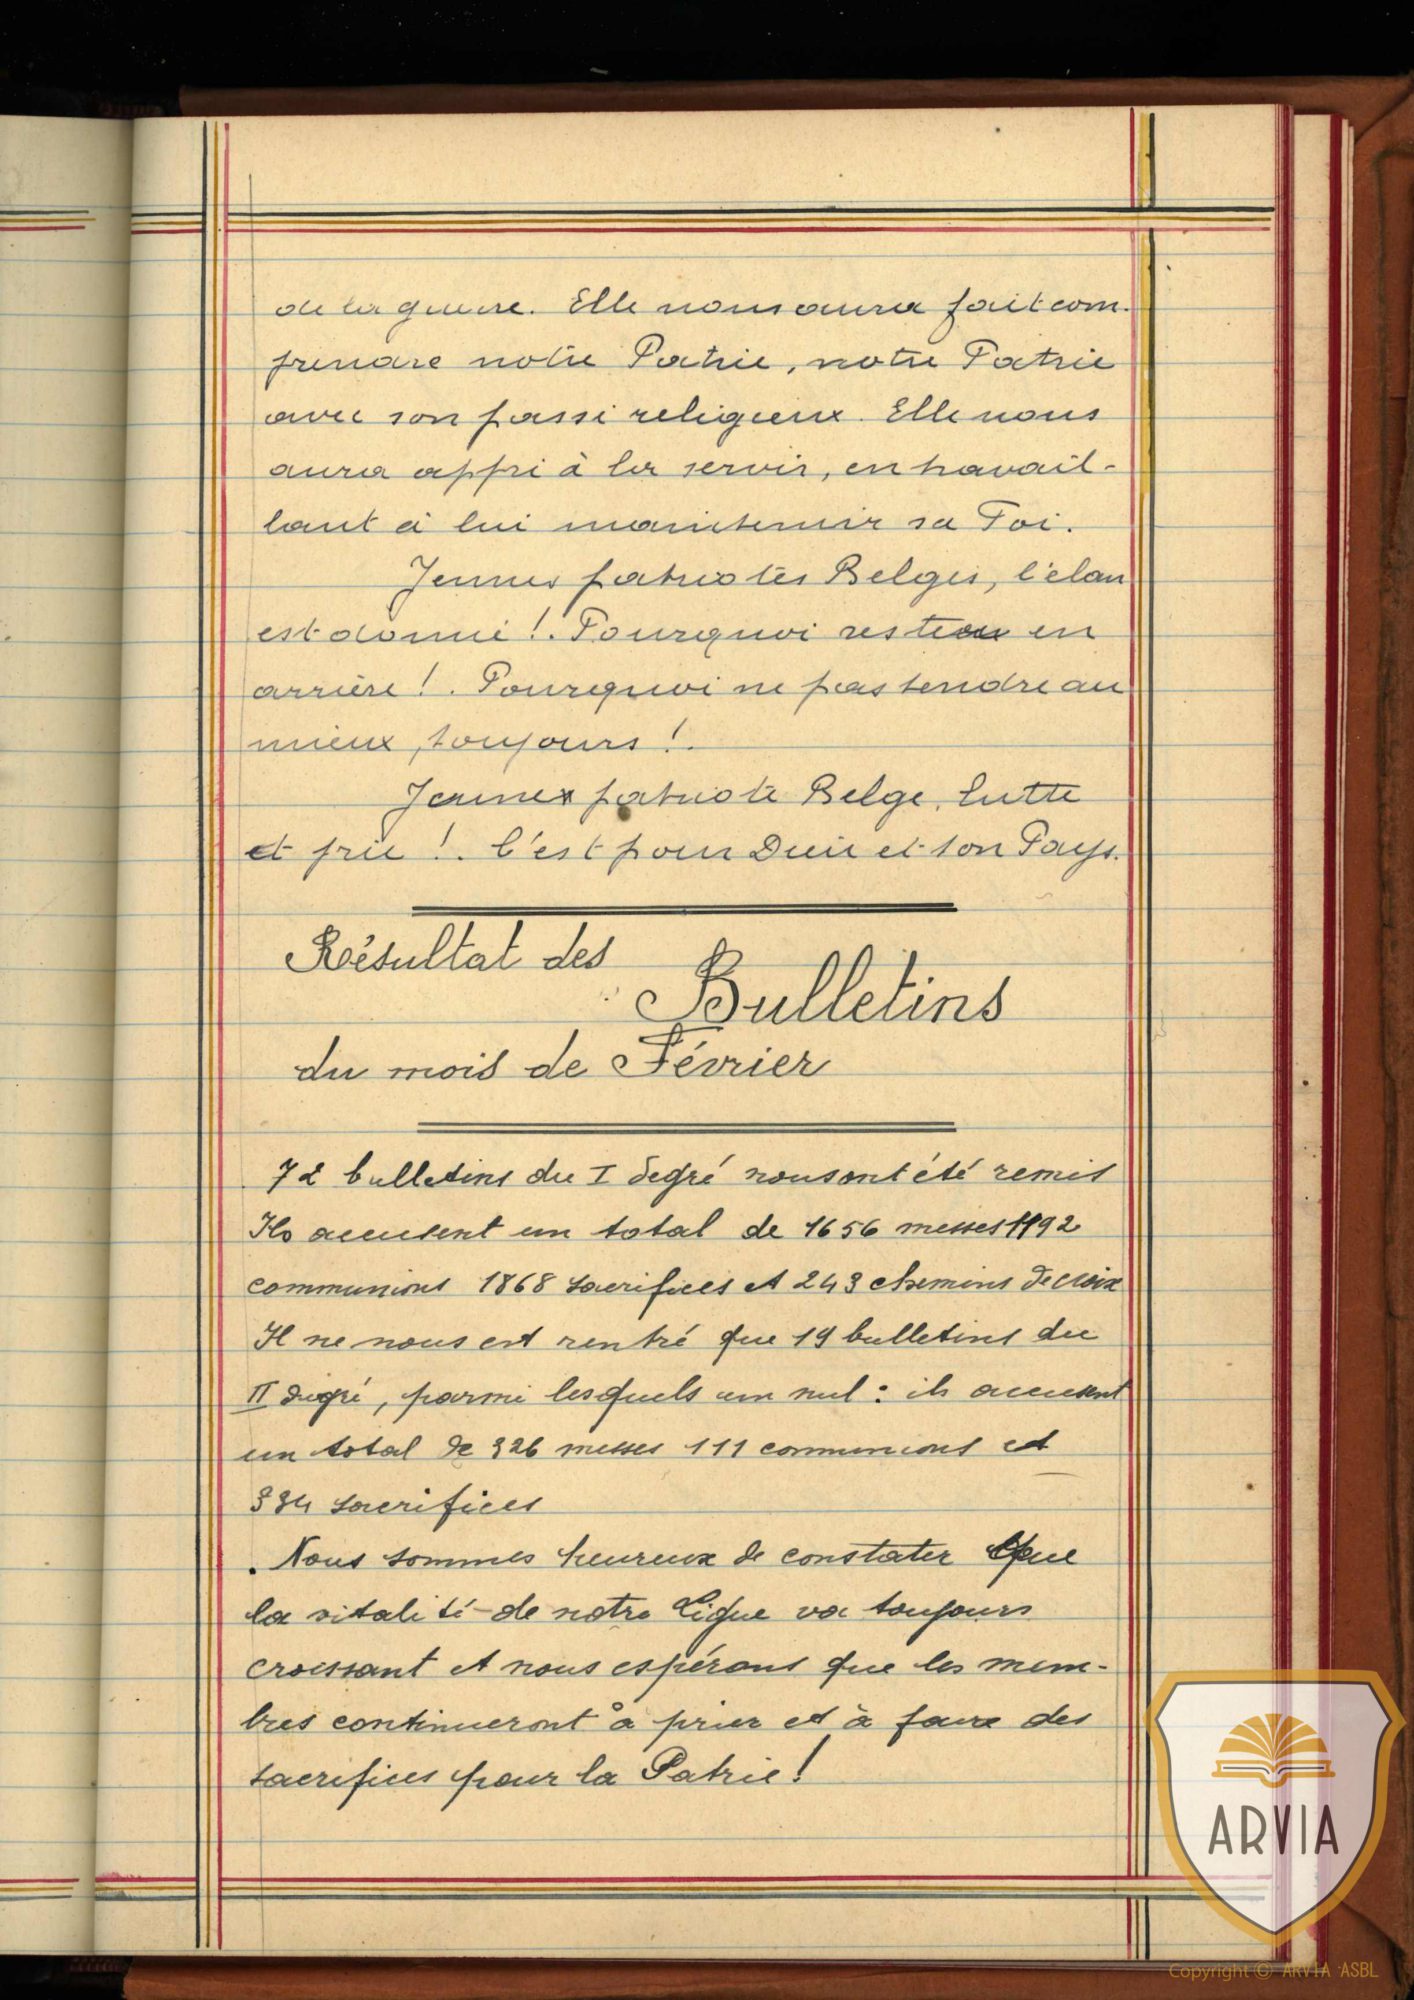 de la guerre. Elle nous aura fait com-
prendre notre Patrie, notre Patrie
avec son passé religieux. Elle nous
aura appri à la servir, en travail-
lant à lui maintenir sa Foi.
Jeunes patriotes Belges, l'élan
est donné !. Pourquoi rester en
arrière !. Pourquoi ne pas tendre au
mieux, toujours !.
Jeune patriote Belge, lutte
et prie !. C'est pour Dieu et ton Pays.
Résultat des
Bulletins
du mois de Février
72 bulletins du I degré nous ont été remis
Ils accusent un total de 1656 messes 1192
communions 1868 sacrifices et 243 chemins de croix
Il ne nous est rentré que 19 bulletins du
II degré, parmi lesquels un nul : ils accusent
un total de 326 messes 111 communions et
334 sacrifices
. Nous sommes heureux de constater que
la vitalité de notre Ligue va toujours
croissant et nous espérons que les mem-
bres continueront à prier et à faire des
sacrifices pour la Patrie !
ARVIA
Copyright © ARVIA ASBL